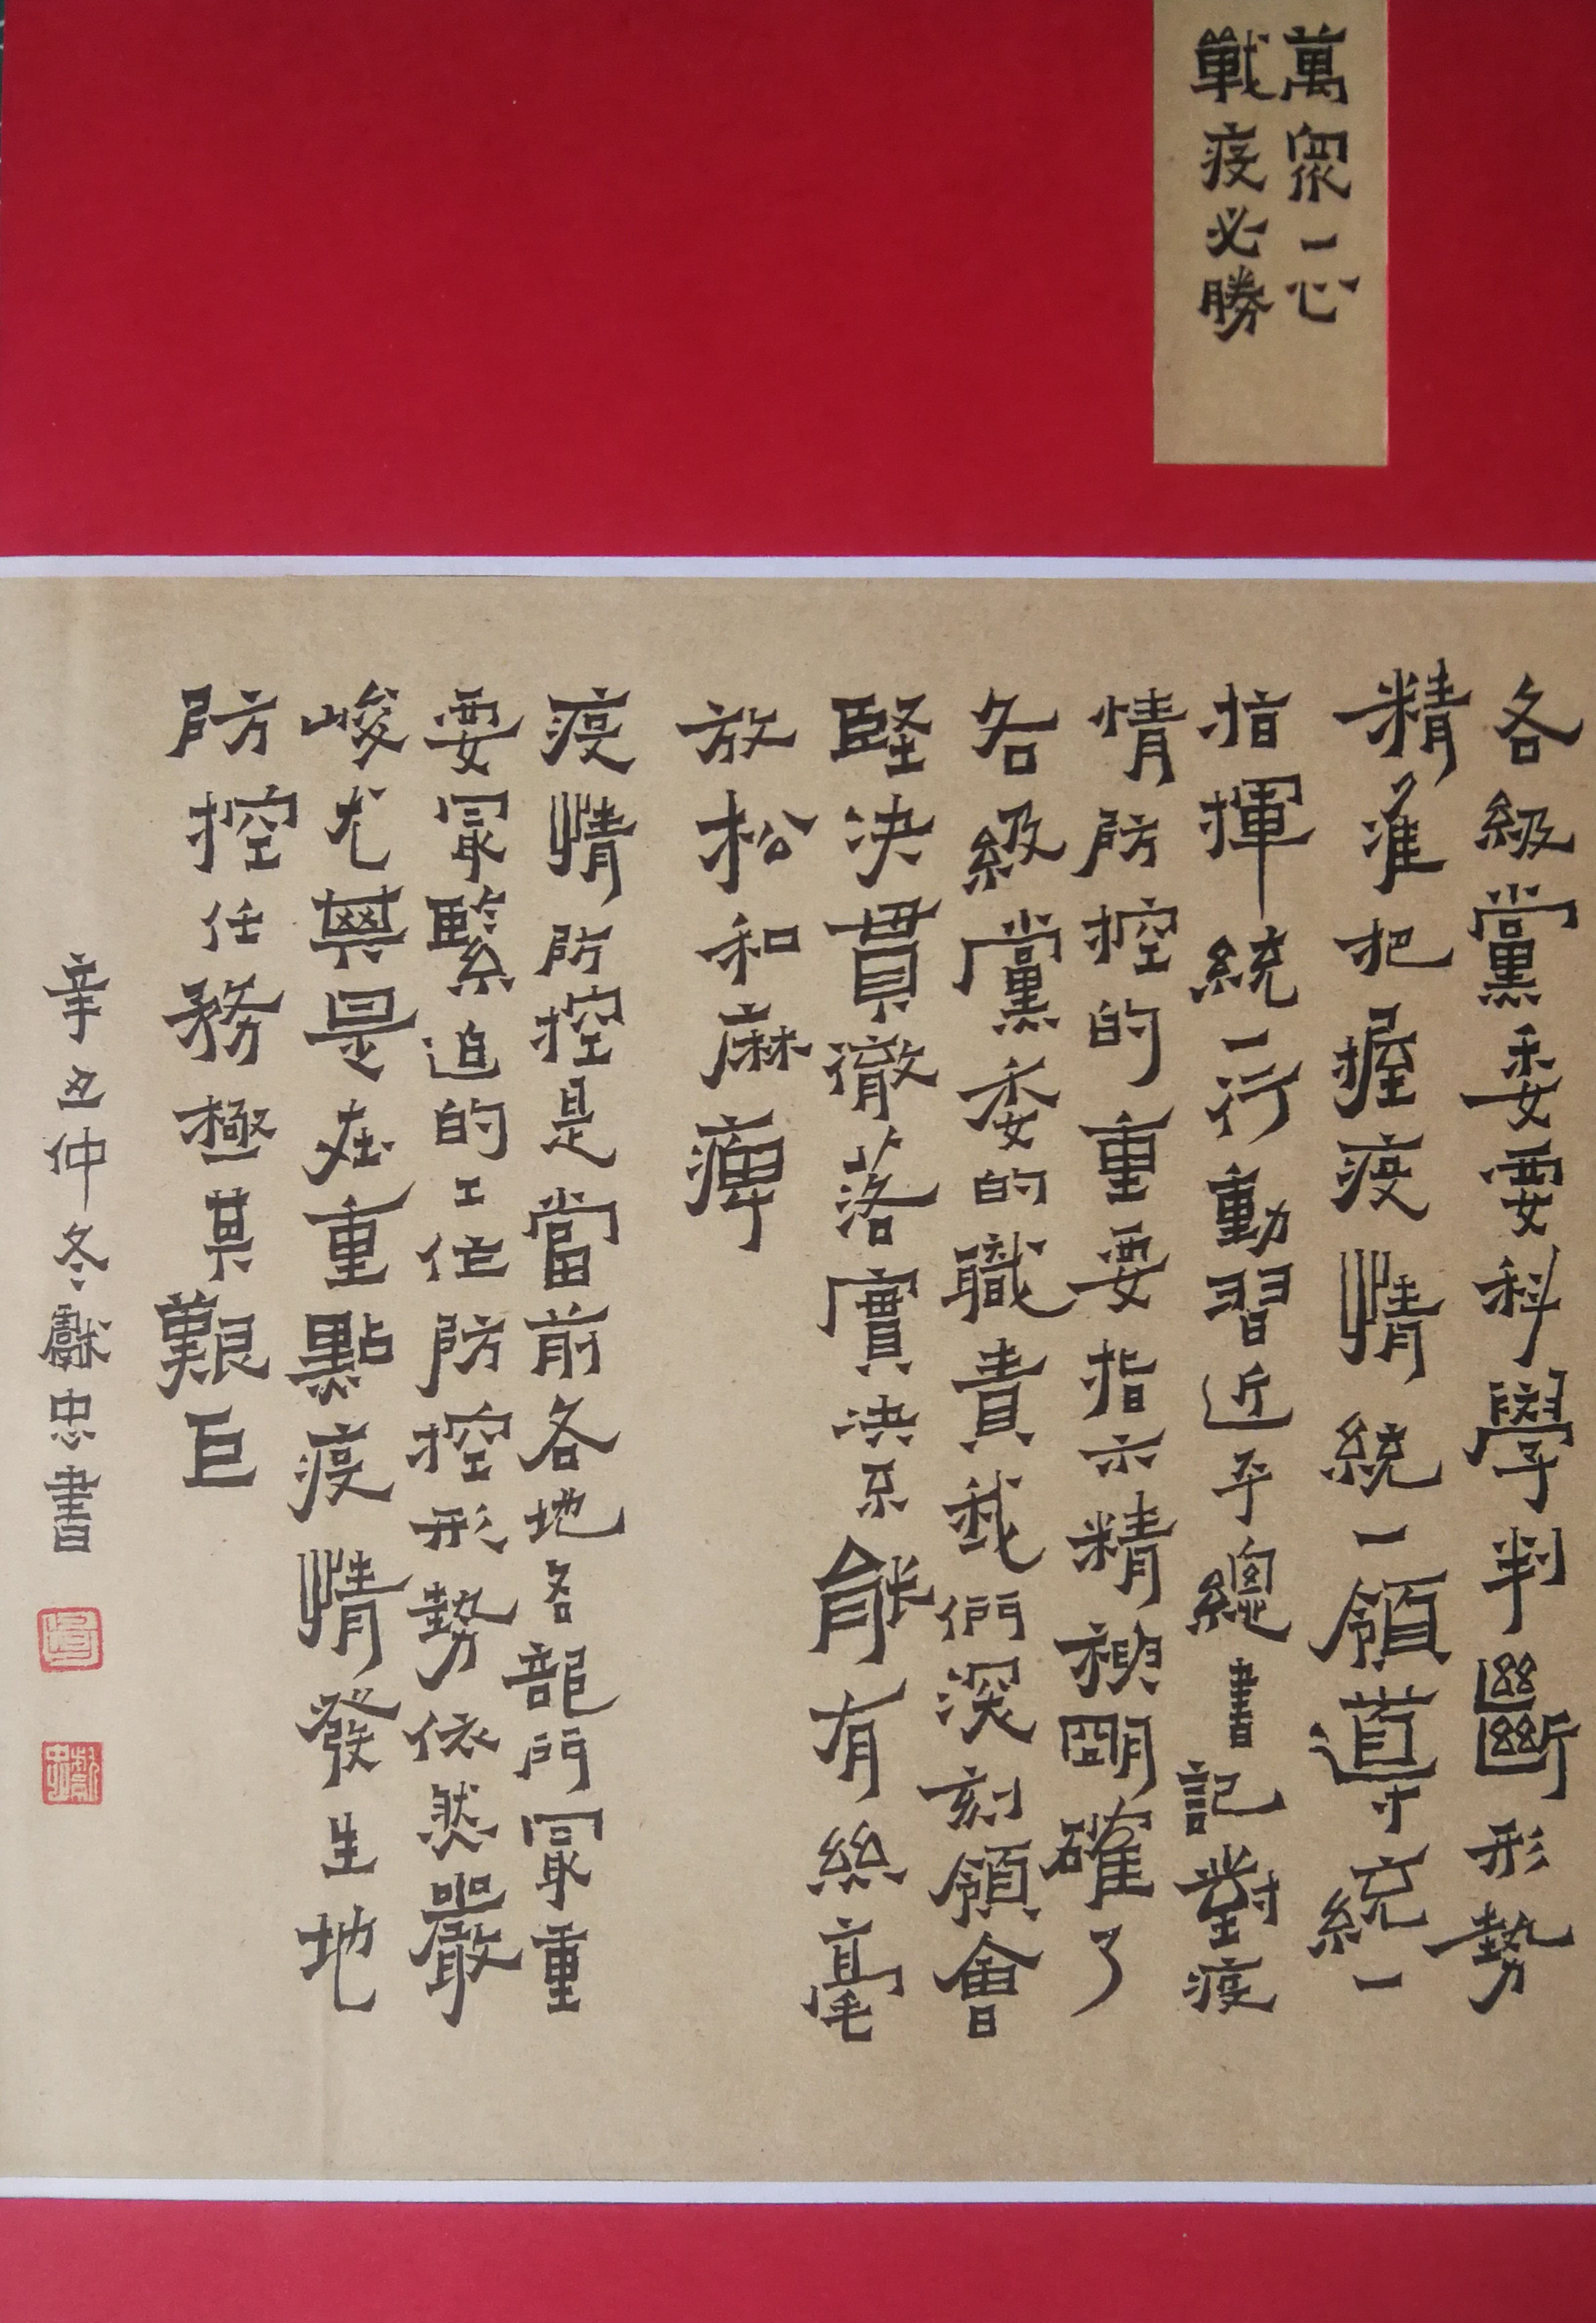 萬眾一心
戰疫必勝
各級黨委要科學判斷形勢
精准把握疫情統一領導統一
指揮統一行動習近平總書記對疫
情防控的重要指示精神明確了
各級黨委的職責我們深刻領會
堅決貫徹落實決不能有絲毫
放松和麻痺
疫情防控是當前各地各部門最重
要最緊迫的工作防控形勢依然嚴
峻尤其是在重點疫情發生地
防控任務極其艱巨
辛丑仲冬獻忠書